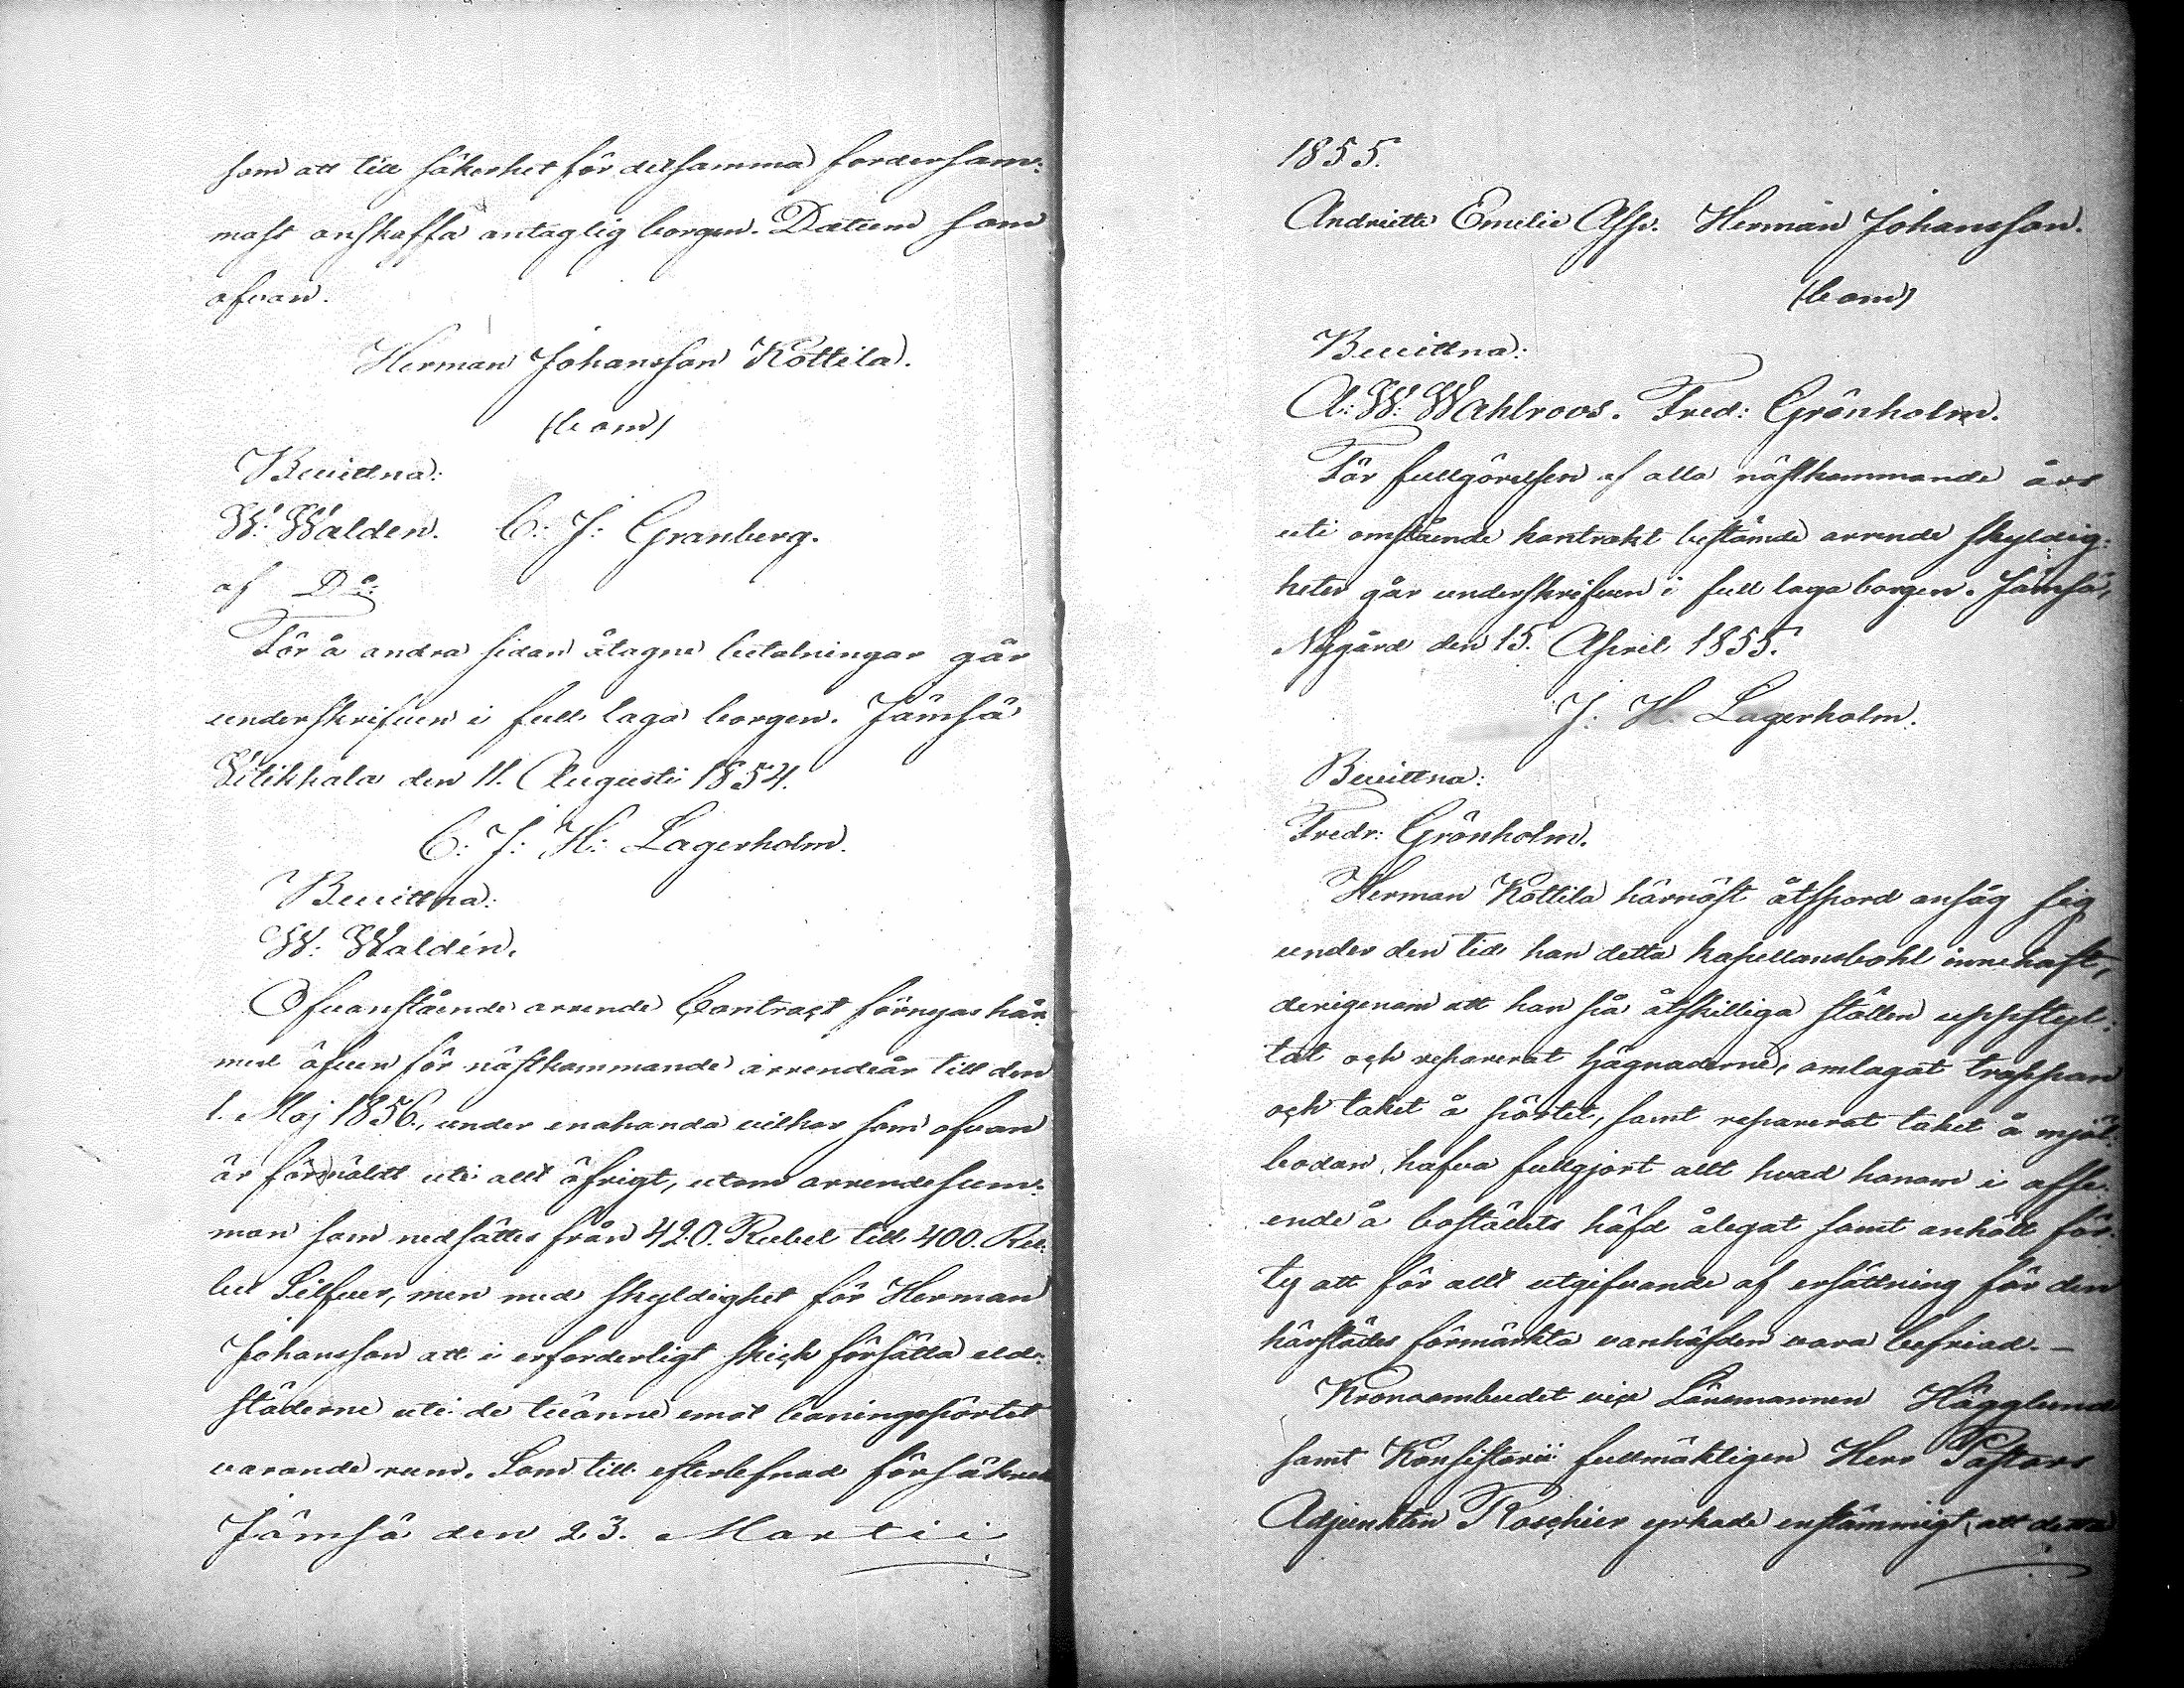 som att till säkerhet för detsamma fordersam-
mast anskaffa antaglig borgen. Datum som
ofvan.
Herman Johansson Kottila.
(bom)
Bevittna:
W: Walden. C: J: Granberg.
af Do:
För å andra sidan åtagne betalningar går
underskrifven i full laga borgen. Jämsä
Witikkala den 11. Augusti 1854.
C: J: H: Lagerholm.
Bevittna:
W: Waldén.
Ofvanstående arrende Contract förnyas här-
med äfven för nästkommande arrendeår till den
1. Maj 1856., under enahanda vilkor som ofvan
är förmäldt uti allt öfrigt, utom arrendesum-
man som nedsättes från 420. Rubel till 400. Ru-
bel Silfver, men med skyldighet för Herman
Johansson att i erforderligt skick försätta eld-
städerne uti de tvänne emot boningspörtet
varande rum. Som till efterlefnad försäkras
Jämsä den 23. Martii
1855.
Andriette Emelie Asp. Herman Johansson.
(bom)
Bevittna:
A: W: Wahlroos. Fred: Grönholm.
För fullgörelsen af alla nästkommande års
uti omstående kontrakt bestämde arrende skyldig-
heter går underskrifven i full laga borgen. Jämsä,
Nygård den 15. April 1855.
J: H. Lagerholm.
Bevittna:
Fredr: Grönholm.
Herman Kottila härnäst åtspord ansåg sig
under den tid han detta kapellansbohl innehaft,
derigenom att han på åtskilliga ställen uppstyl-
tat och reparerat hägnaderne, omlagat trappan
och taket å pörtet, samt reparerat taket å mjöl-
bodan, hafva fullgjort allt hvad honom i afse-
ende å boställets häfd ålegat samt anhöll för-
ty att för allt utgifvande af ersättning för den
härstädes förmärkta vanhäfden vara befriad. –
Kronoombudet vice Länsmannen Hägglund
samt Konsistorii fullmäktigen Herr Pastors
Adjunkten Roschier yrkade enstämmigt, att detta